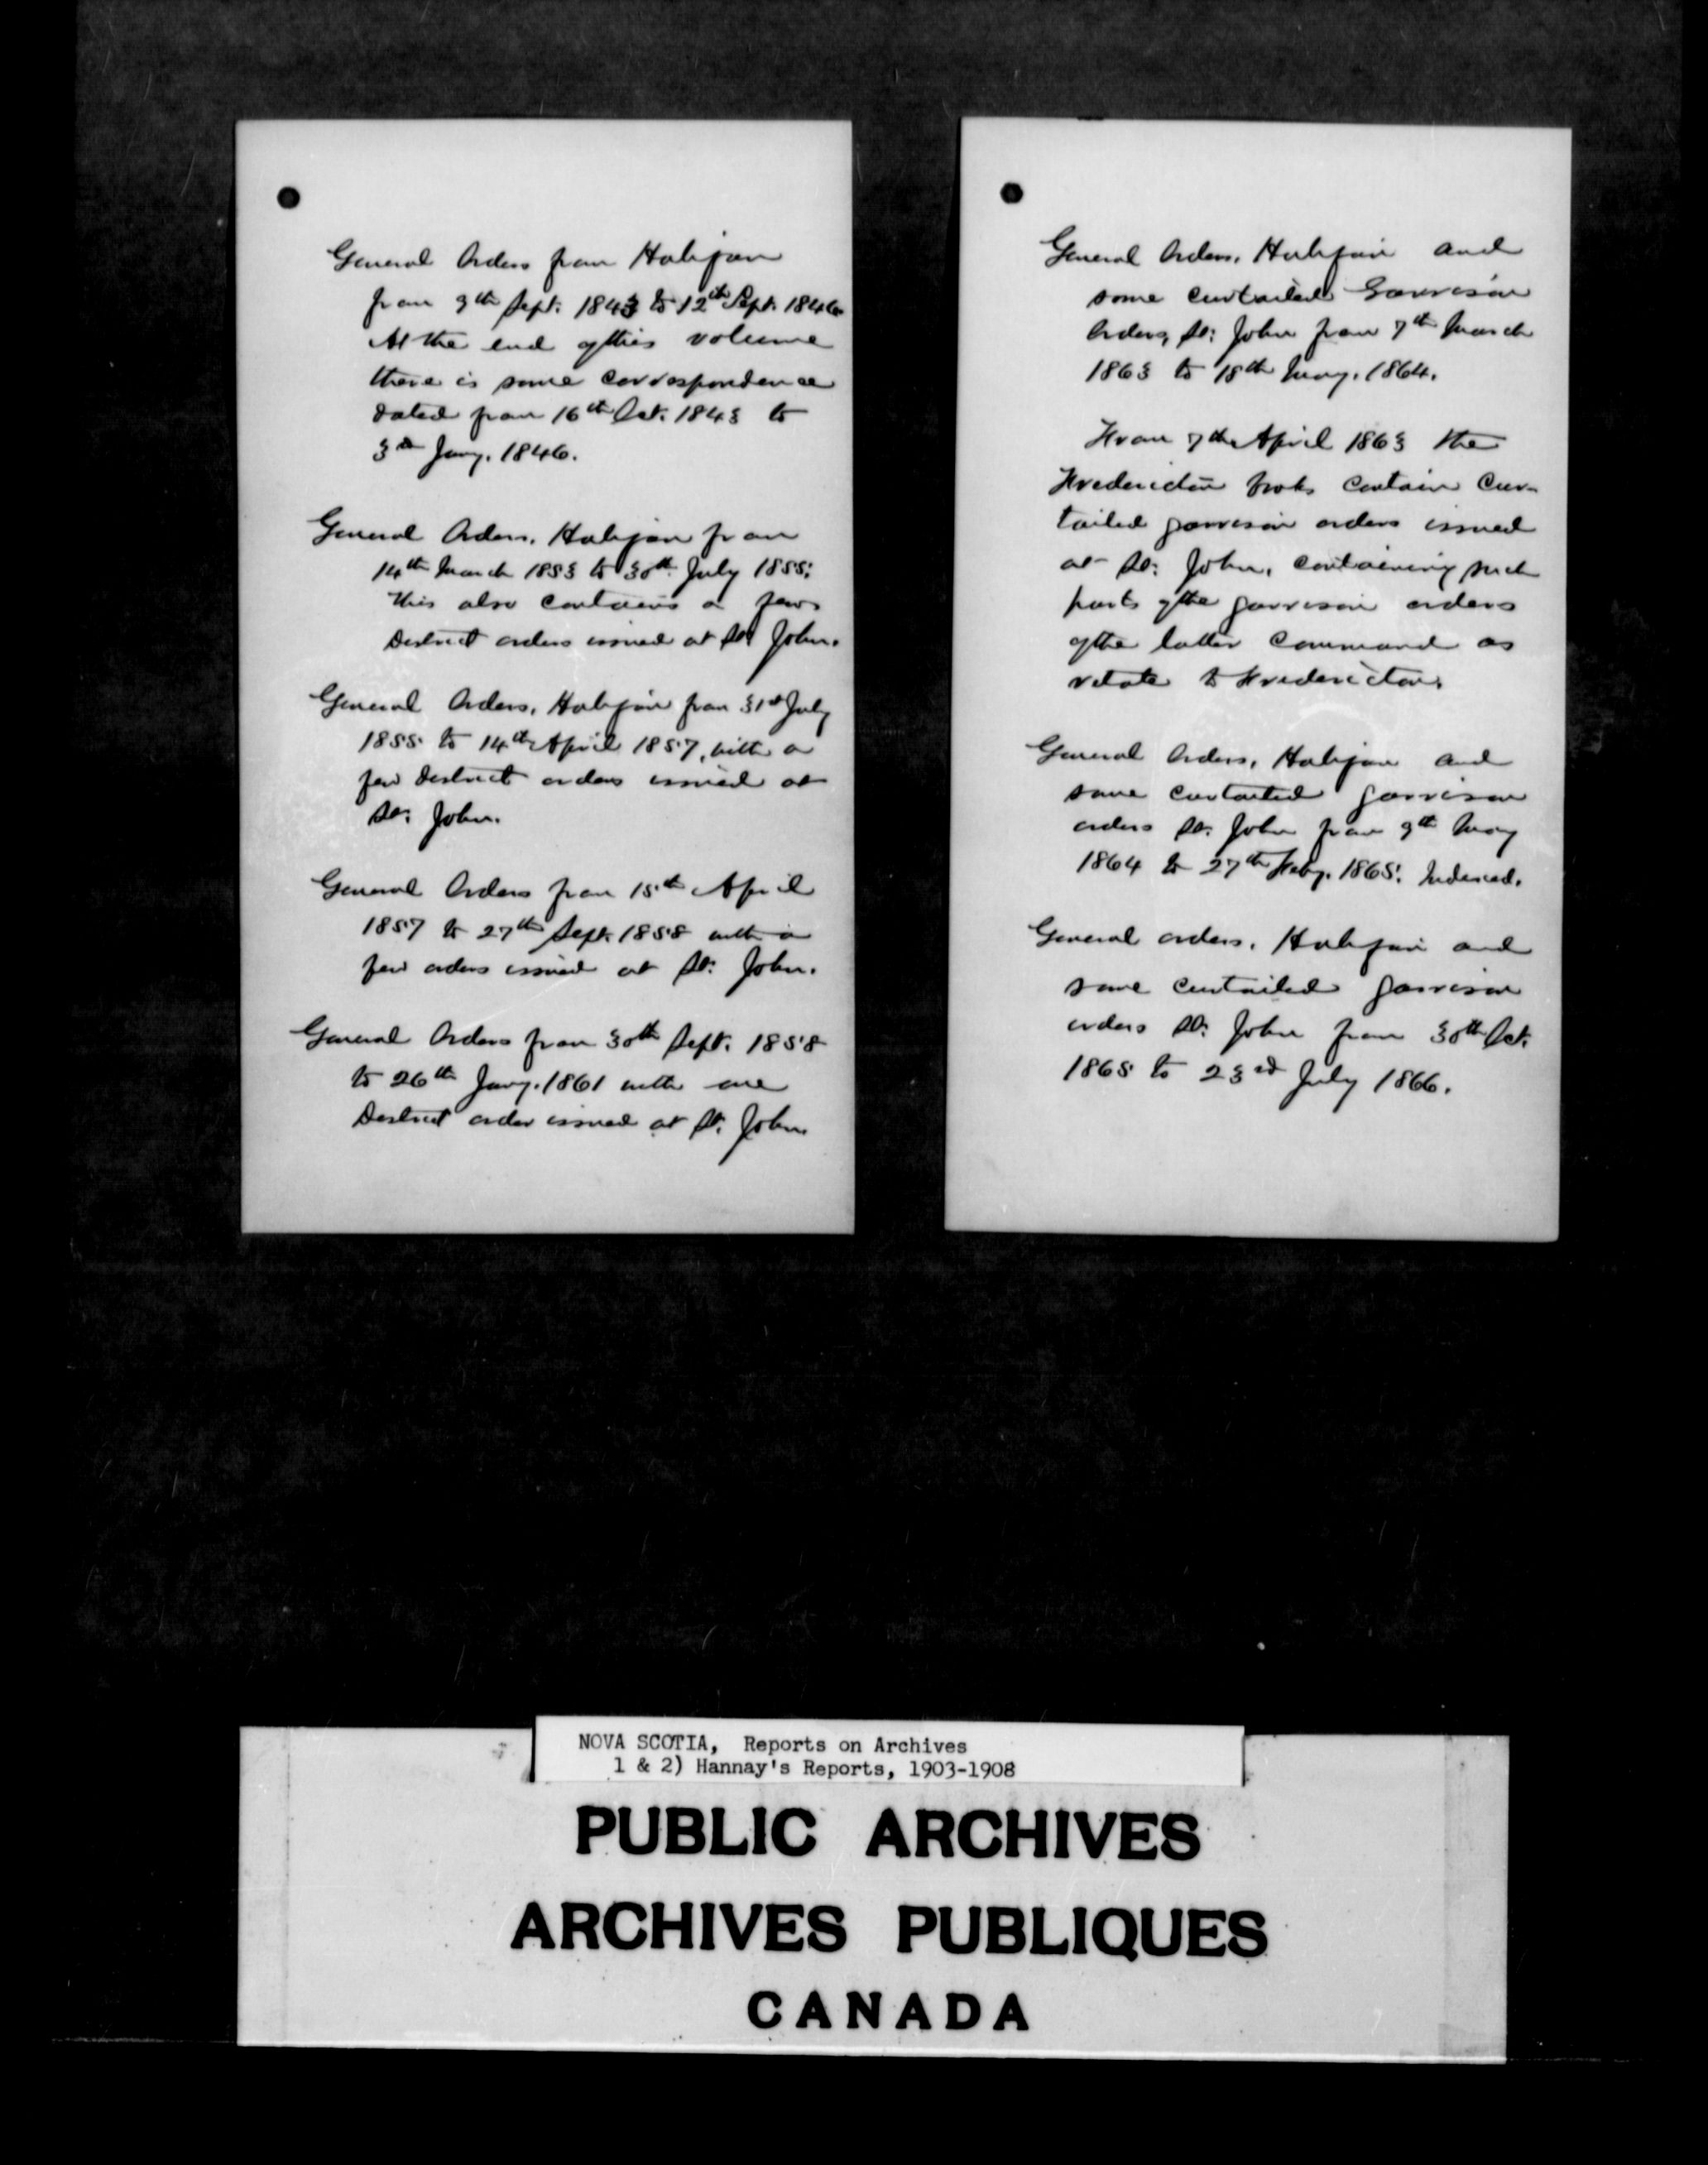 General Orders from Halifax
from 9th Sept: 1843 to 12th Sept. 1846
At the end of this volume
there is some correspondence
dated from 16th Oct. 1843 to
3rd Jany. 1846.
General Orders, Halifax from
14th March 1853 to 30th July 1855.
This also contains a few
District orders issued at St. John.
General Orders, Halifax from 31st July
1855 to 14th April 1857, with a
few District orders issued at
St: John.
General Orders from 15th April
1857 to 27th Sept. 1858 with a
few orders issued at St: John.
General Orders from 30th Sept. 1858
to 26th Jany. 1861 with one
District order issued at St. John
General Orders, Halifax and
some curtailed Garrison
Orders, St: John from 7th March
1863 to 18th May. 1864.
From 7th April 1863 the
Fredericton books contain Cur-
tailed garrison orders issued
at St: John, containing such
parts of the garrison orders
of the latter command as
relate to Fredericton.
General Orders, Halifax and
some curtailed garrison
orders St. John from 9th May
1864 to 27th Feby. 1865. Indexed.
General orders, Halifax and
some curtailed garrison
orders St. John from 30th Oct.
1865 to 23rd July 1866.
NOVA SCOTIA, Reports on Archives
1 & 2) Hannay's Reports, 1903-1908
PUBLIC ARCHIVES
ARCHIVES PUBLIQUES
CANADA